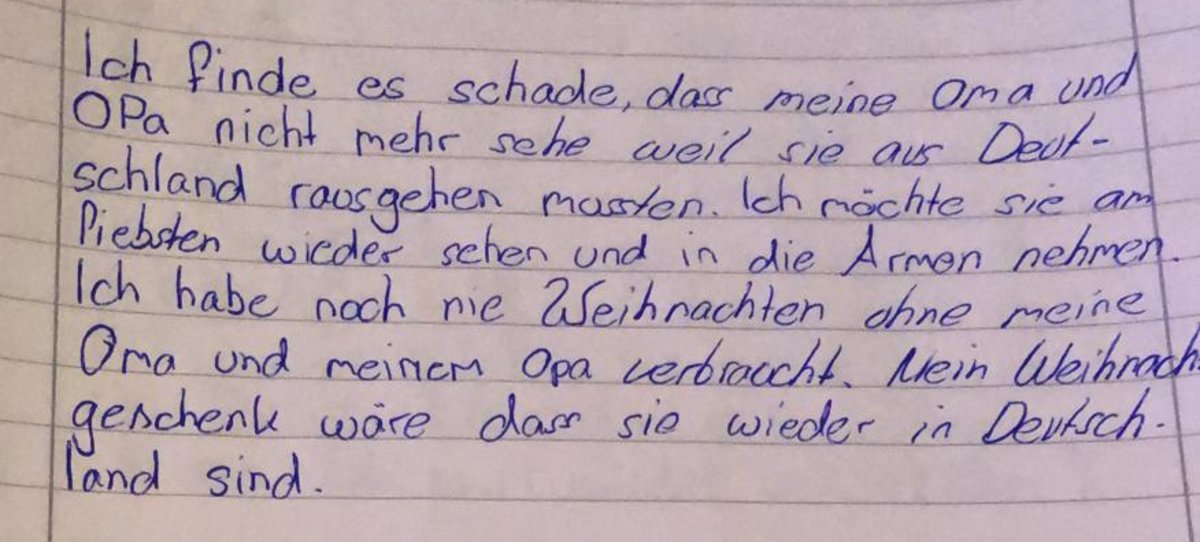 Ich finde es schade, dass meine Oma und
OPa nicht mehr sehe weil sie aus Deut-
schland rausgehen mussten. Ich möchte sie am
liebsten wieder sehen und in die Armen nehmen.
Ich habe noch nie Weihnachten ohne meine
Oma und meinem Opa verbraucht. Mein Weihnach
geschenk wäre dass sie wieder in Deutsch-
land sind.